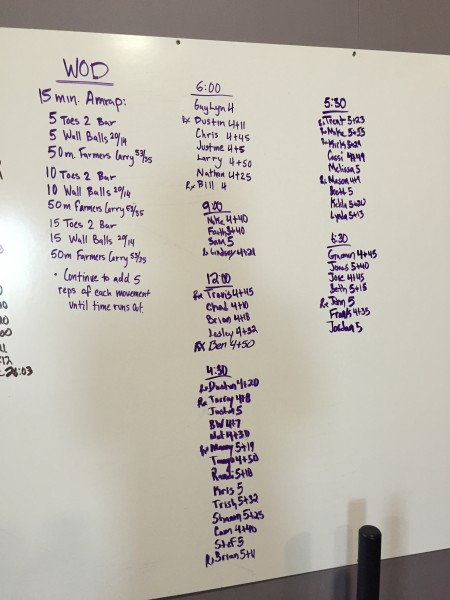 WOD
15 min. Amrap:
5 Toes 2 Bar
5 Wall Balls 20/14
50m Farmers Carry 53/35
10 Toes 2 Bar
10 Wall Balls 20/14
50m Farmers Carry 53/35
15 Toes 2 Bar
15 Wall Balls 20/14
50m Farmers Carry 53/35
• Continue to add 5
reps of each movement
until time runs out.
6:00
GuyLyn 4
Rx Dustin 4+11
Chris 4+45
Justine 4+5
Larry 4+50
Nathan 4+25
Rx Bill 4
9:00
Mike 4+40
Faith 3+40
Sam 5
Lindsey 4+21
12:00
Rx Travis 4+45
Chad 4+10
Brian 4+18
Lesley 4+32
RX Ben 4+50
4:30
Rx Dustin 4+20
Rx Torrey 4+8
Justin 5
BW 4+7
Nat 4+30
Rx Manny 5+19
4+50
5+18
Kris 5
Trish 5+32
Shannon 5+25
Cam 4+40
Stef 5
Rx Brian 5+11
5:30
Rx Trent 5+23
Rx Mike 5+55
Rx Kirk
Cassi 4+49
Melissa 5
Rx Mason 4+9
Brett 5
Lynda 5+13
6:30
4+45
Jonas 5+40
Jose 4+45
Beth 5+15
Rx John 5
Frank 4+35
Jordan 5
26:03